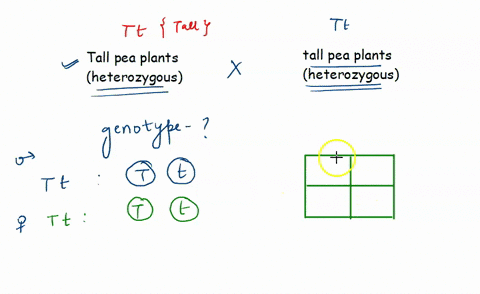 Tt { Tall }
Tt
Tall pea plants
(heterozygous)
X
tall pea plants
(heterozygous)
genotype - ?
♂
Tt : T t
♀ Tt : T t